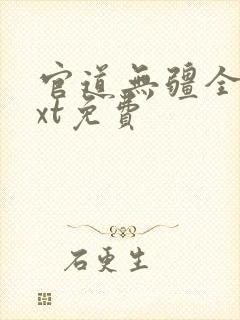 官道無疆全
xt免費
石更生